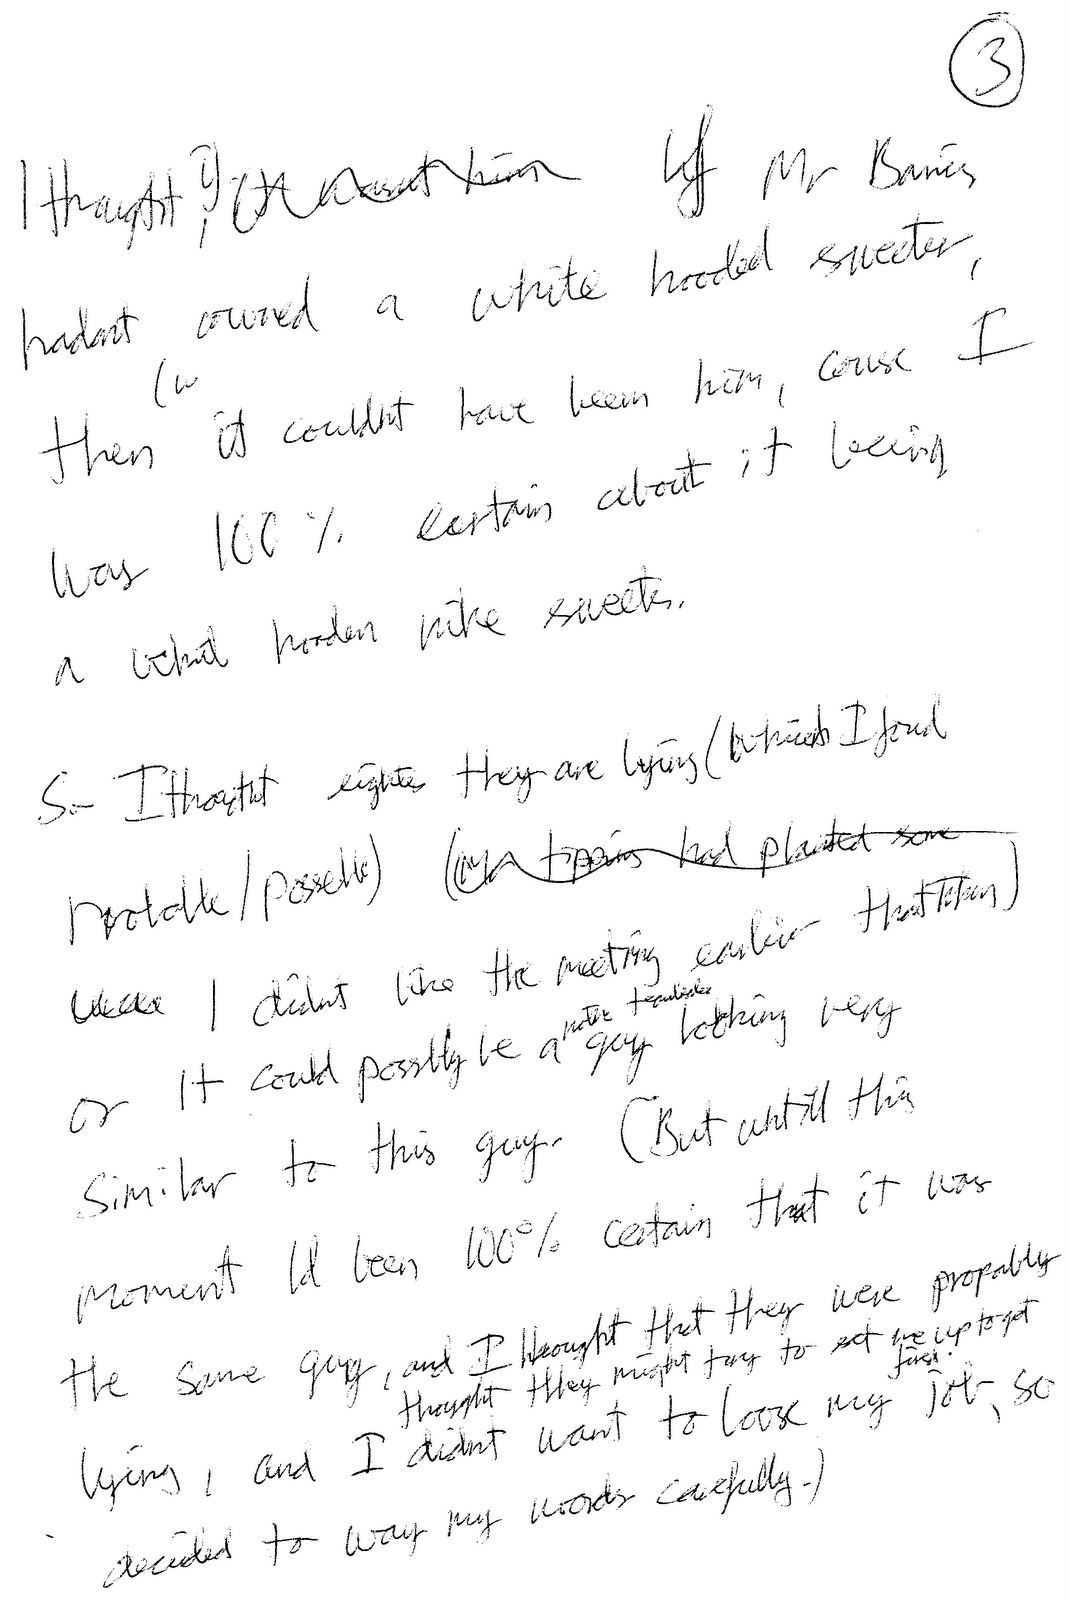 3
I thought, if Mr
hadnt owned a white hooded sweeter,
(w
then it couldnt have been him, couse I
was 100% certain about it beeing
a whit hooden nike sweeter.
So I thought they are lying (which I found
/
had planted some
I didnt like the meeting earlier that
or it could possbly be a guy looking very
similar to this guy. (But untill this
moment Id been 100% certain that it was
the same guy, and I thought that they were propably
thought they might tray to set me up to get
fired.
lying, and I didnt want to loose my job, so
decided to way my words carefully.)